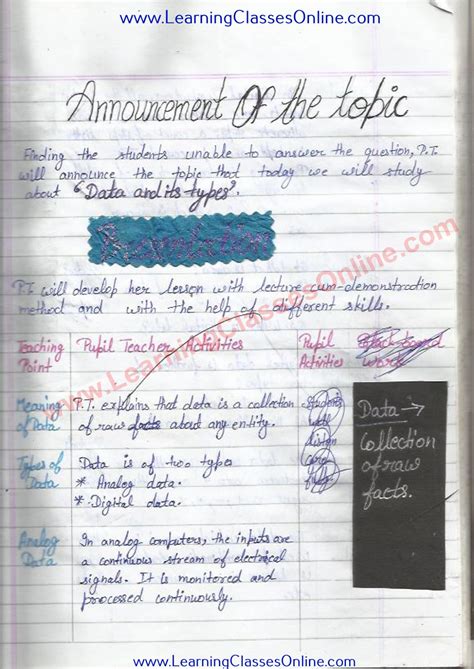 www.LearningClassesOnline.com
Announcement Of the topic
Finding the students unable to answer the question, P.T.
will announce the topic that today we will study
about "Data and its types".
Presentation
P.T. will develop her lesson with lecture cum-demonstration
method and with the help of different skills.
Teaching Point
Pupil Teacher Activities
Pupil Activities
Black board work
Meaning of Data
P.T. explains that data is a collection
of raw facts about any entity.
Students
will
listen
carefully
Data →
Collection
of raw
facts.
Types of Data
Data is of two types
* Analog data.
* Digital data.
Analog Data
In analog computers, the inputs are
a continuous stream of electrical
signals. It is monitored and
processed continuously.
www.LearningClassesOnline.com
www.LearningClassesOnline.com